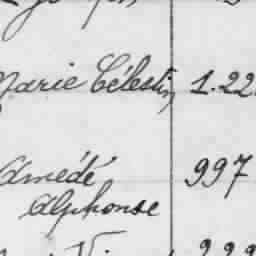 Marie Célestin 1.22
Amédé 997
Alphonse